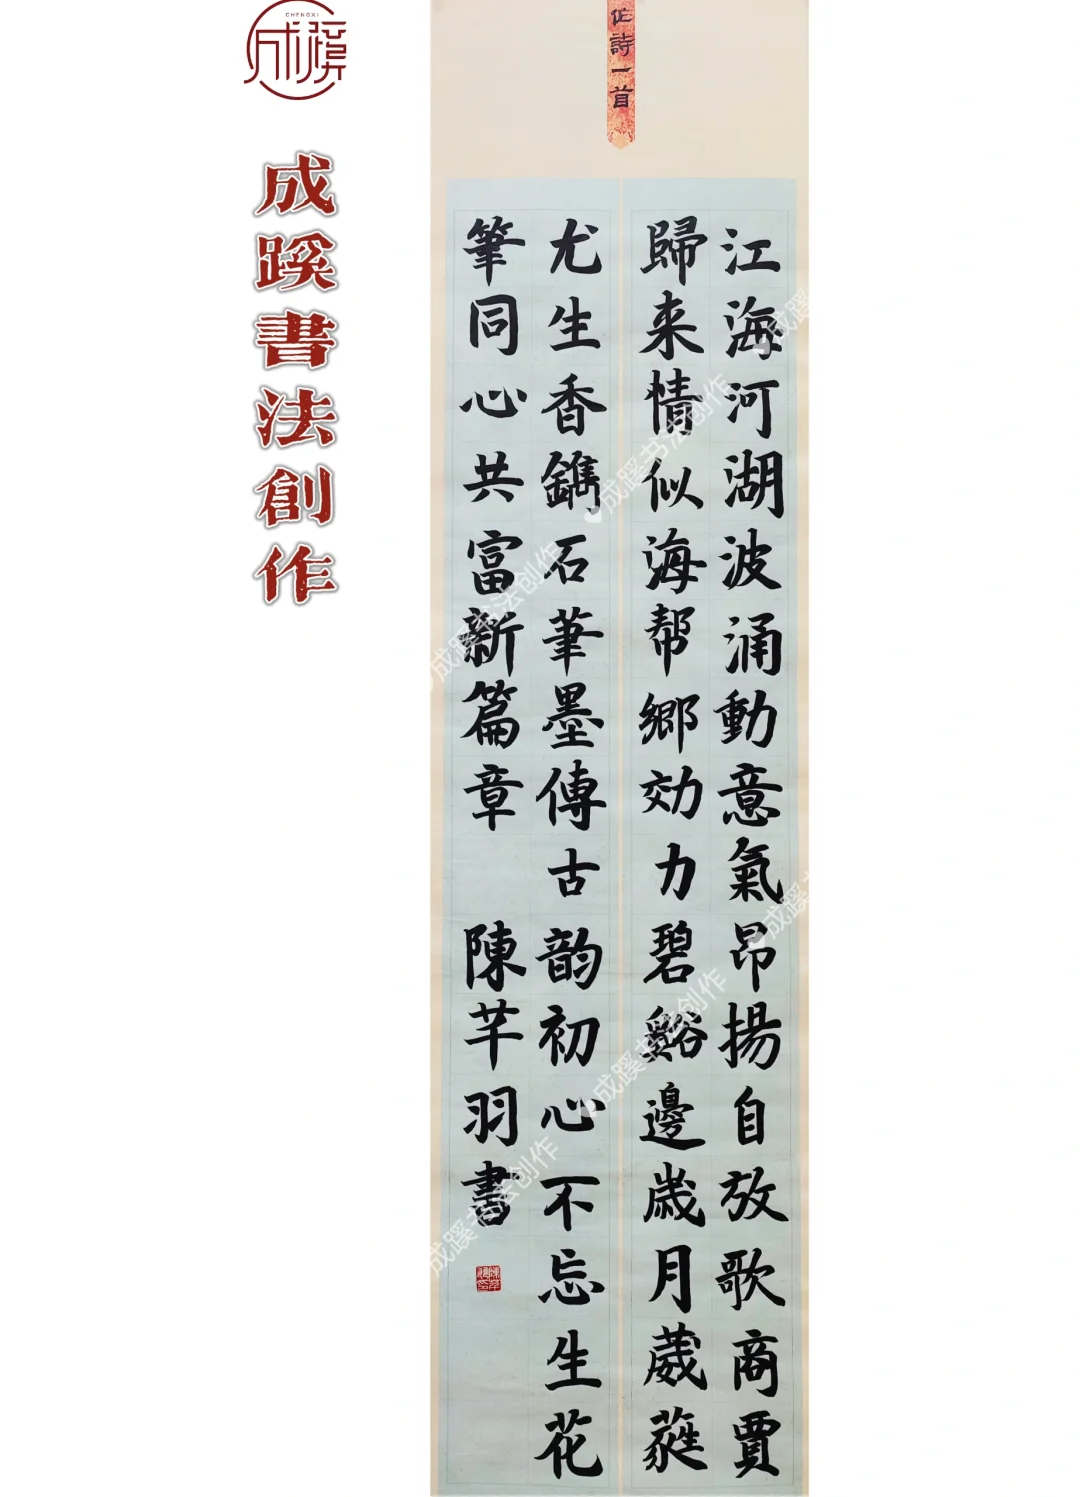 CHENGXI
成蹊
成蹊書法創作
作詩一首
江海河湖波涌動意氣昂揚自放歌商賈
歸来情似海帮鄉効力碧谿邊歲月葳蕤
尤生香鐫石筆墨傳古韵初心不忘生花
筆同心共富新篇章 陳芊羽書
成蹊书法创作
成蹊书法创作
成蹊书法创作
成蹊书法创作